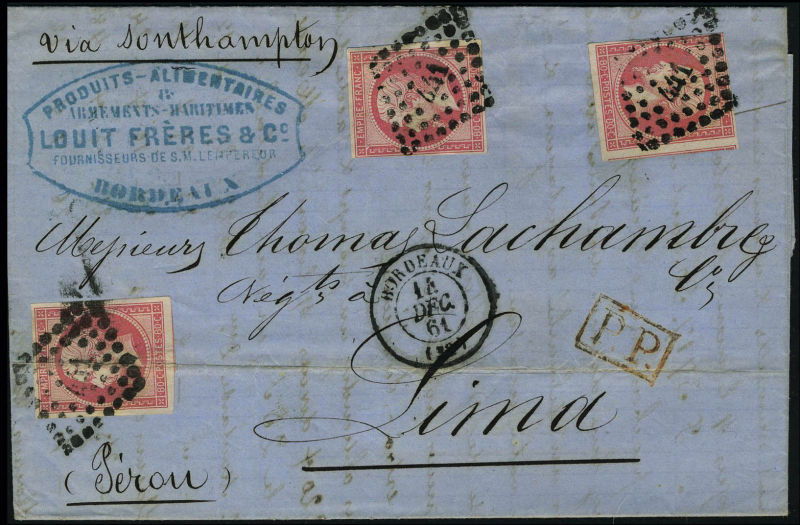 via Southampton
PRODUITS-ALIMENTAIRES
&
ARMEMENTS-MARITIMES
LOUIT FRÈRES & Cº
FOURNISSEURS DE S.M. L'EMPEREUR
BORDEAUX
EMPIRE FRANC.
80 C
441
Messieurs Thomas Lachambre
& Cie
Négts à
BORDEAUX
14
DEC.
61
P.P.
EMPIRE FRANC.
80 C POSTES 80 C
Lima
(Pérou)